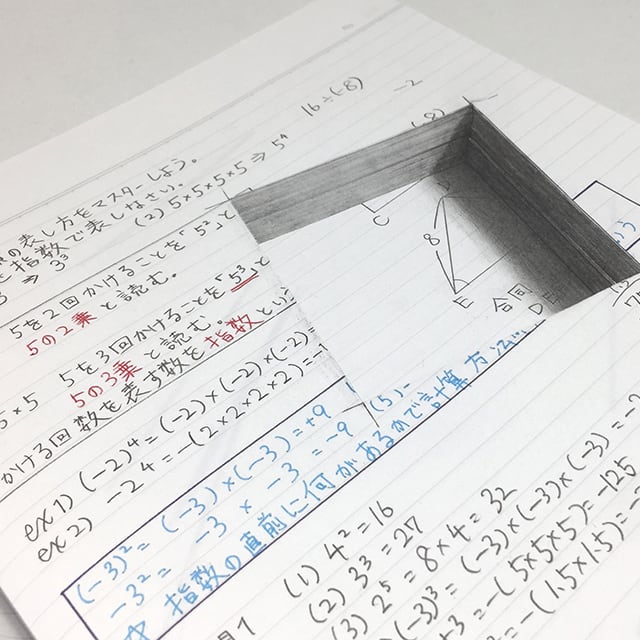 16÷(-8)
-2
の表し方をマスターしよう。
指数で表しなさい。
(2) 5×5×5×5 ⇒ 5⁴
⇒ 3³
5を2回かけることを「5²」と
5の2乗と読む。
5×5 5を3回かけることを「5³」と
5の3乗と読む。
かける回数を表す数を指数とい
ex1) (-2)⁴ = (-2)×(-2)×(-2)
ex2) -2⁴ = -(2×2×2×2) =
(-3)² = (-3)×(-3) = +9
-3² = -3 × -3 = -9
指数の直前に何があるので計算方法
(5)
C
8
E
合同
DE
(1) 4² = 16
(2) 3³ = 27
(3) 2⁵ = 8×4 = 32
(-3)³ = (-3)×(-3)×(-3) =
= -(5×5×5) = -125
= -(1.5×1.5) =